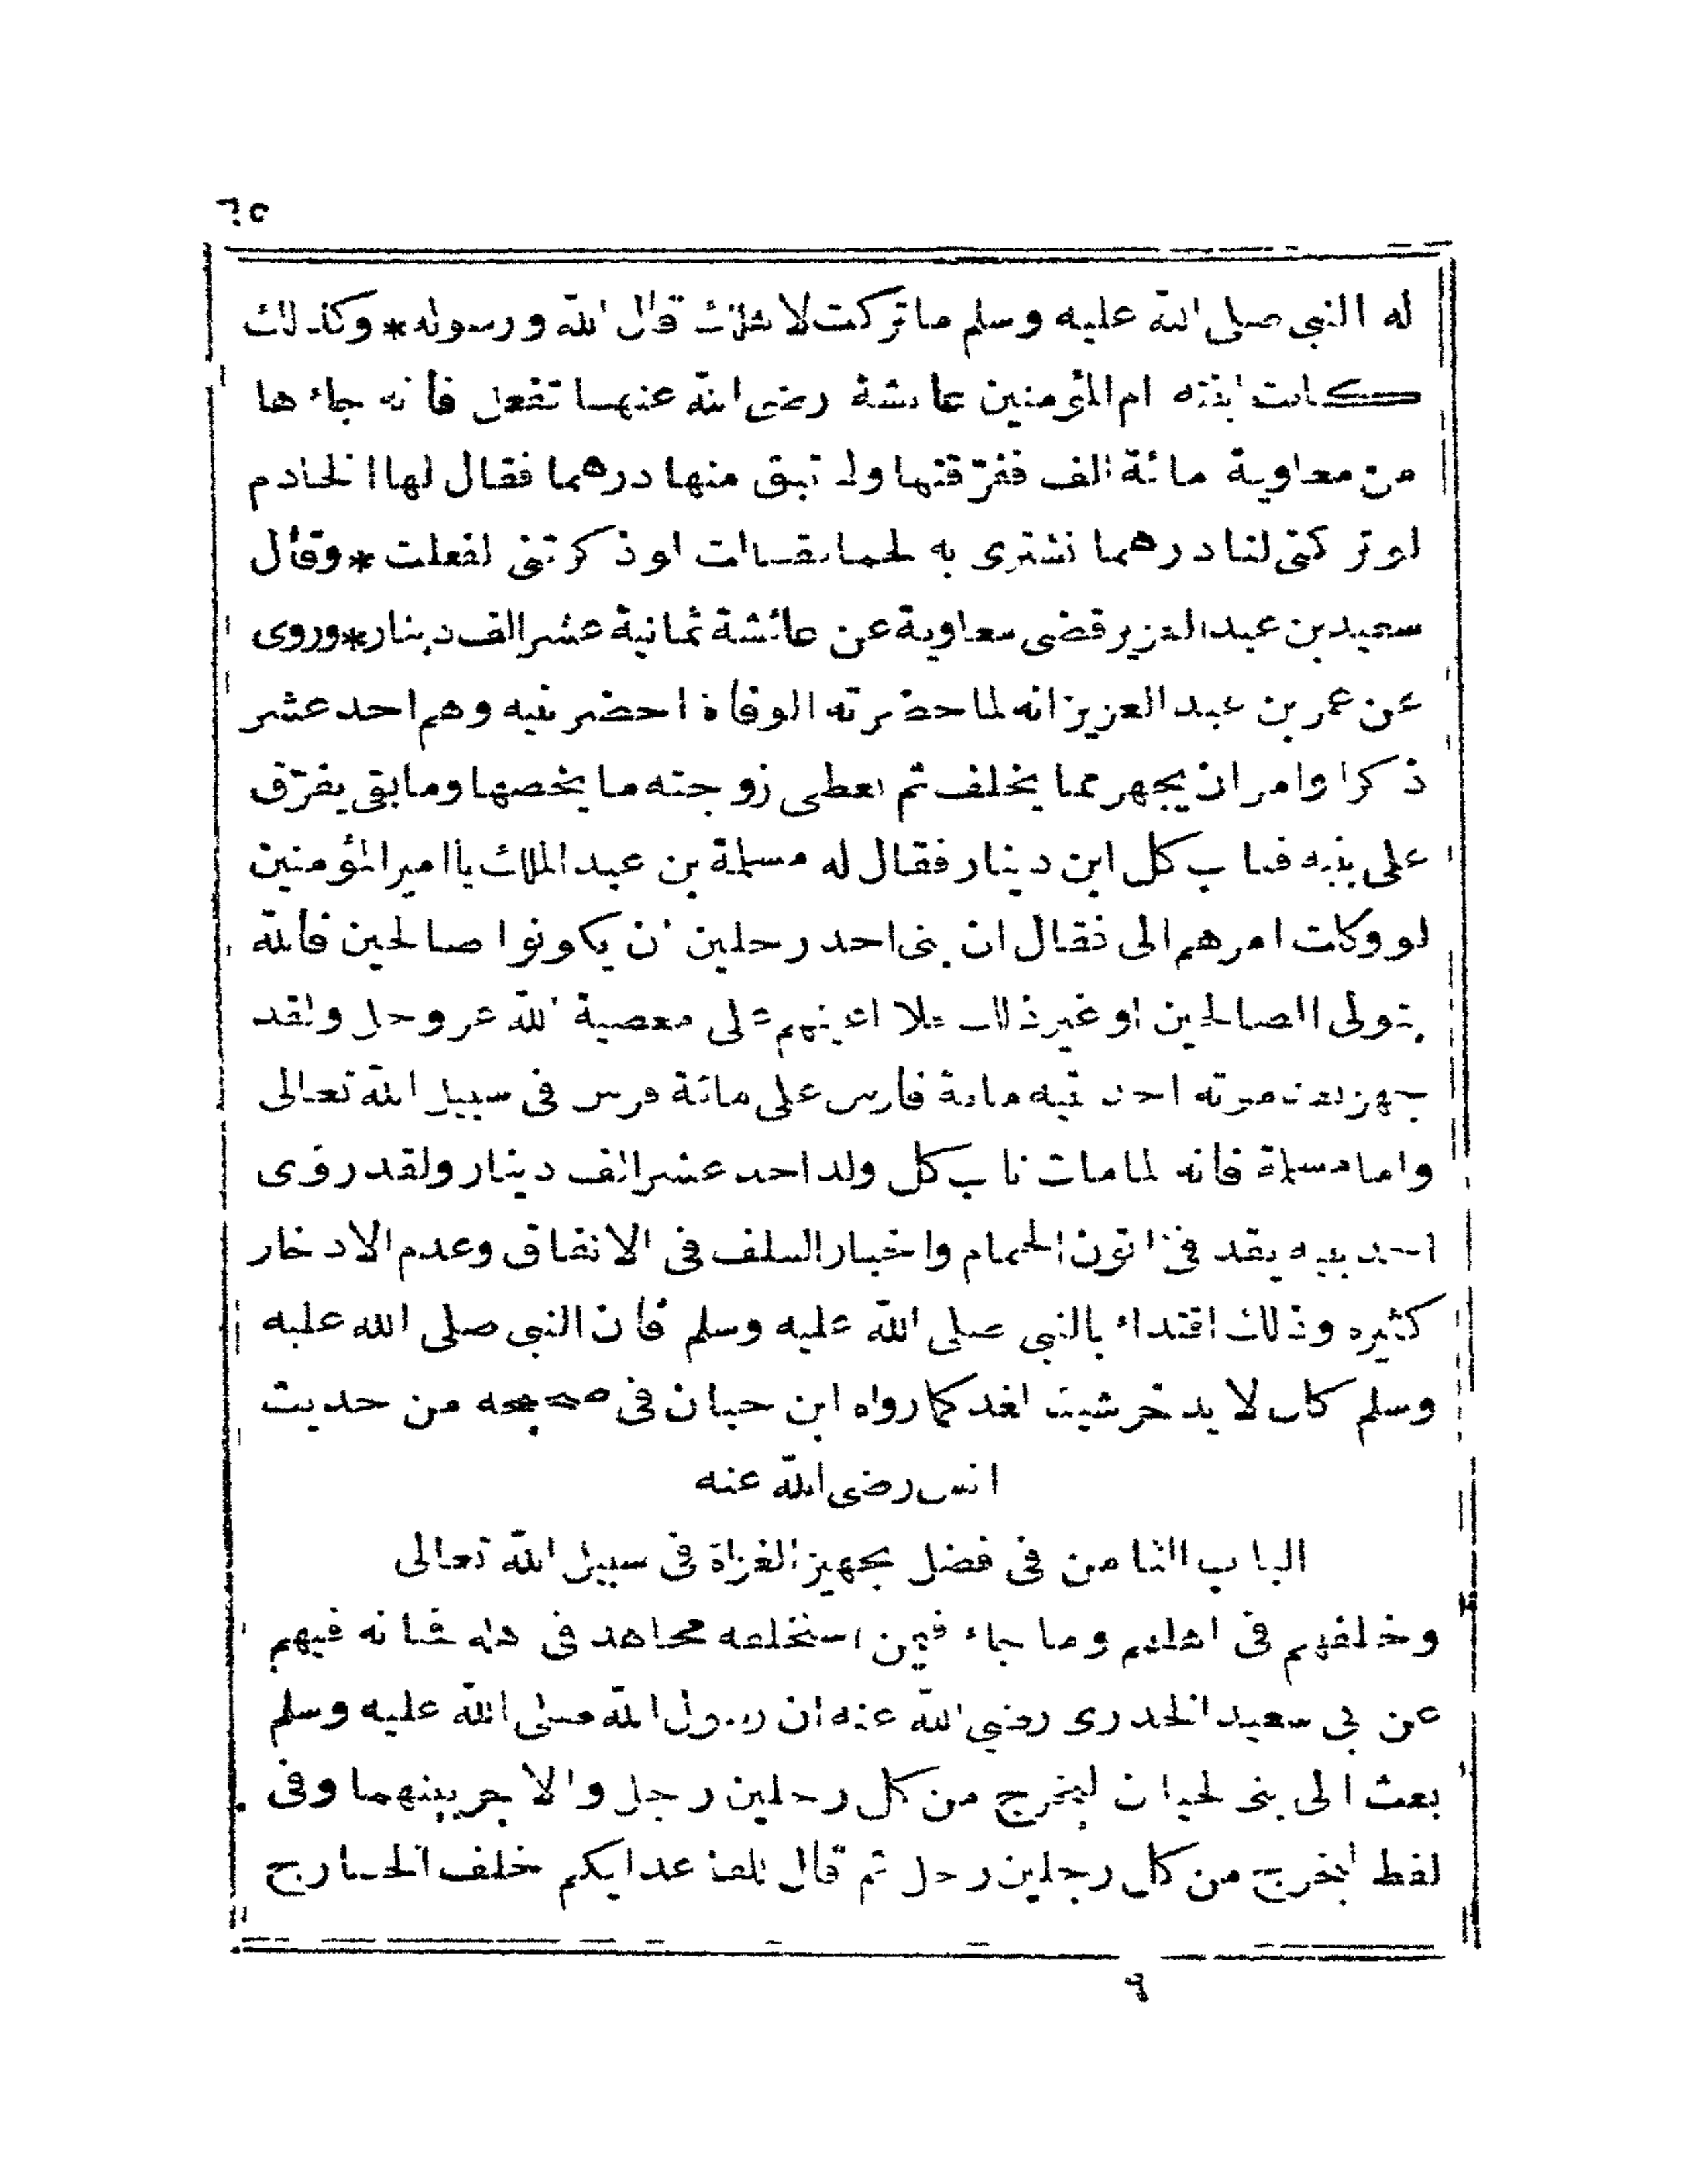 ٦٥
له النبي صلى الله عليه وسلم ما تركت لاهلك قال الله ورسوله * وكذلك
كانت ابنته ام المؤمنين عائشة رضى الله عنها تفعل فانه جاءها
من معاوية مائة الف ففرّقتها ولم تبق منها درهما فقال لها الخادم
لو تركتى لنا درهما نشترى به لحما فقالت لو ذكرتنى لفعلت * وقال
سعيد بن عبد العزيز قضى معاوية عن عائشة ثمانية عشر الف دينار * وروى
عن عمر بن عبد العزيز انه لما حضرته الوفاة احضر بنيه وهم احد عشر
ذكرا وامر ان يجهز مما يخلف ثم اعطى زوجته ما يخصها وما بقى يفرّق
على بنيه فناب كل ابن دينار فقال له مسلمة بن عبد الملك يا امير المؤمنين
لو وكلت امرهم الى فقال ان بنى احد رجلين ان يكونوا صالحين فالله
يتولى الصالحين او غير ذلك فلا اعينهم على معصية الله عز وجل ولقد
جهز بعد موته احد بنيه مائة فارس على مائة فرس فى سبيل الله تعالى
واما مسلمة فانه لما مات ناب كل ولد احد عشر الف دينار ولقد رؤى
احد بنيه يقد فى اتون الحمام واخبار السلف فى الانفاق وعدم الادخار
كثيره وذلك اقتداء بالنبي صلى الله عليه وسلم فان النبي صلى الله عليه
وسلم كان لا يدخر شيئا لغد كما رواه ابن حبان فى صحيحه من حديث
انس رضى الله عنه
الباب الثامن فى فضل تجهيز الغزاة فى سبيل الله تعالى
وخلفهم فى اهليهم وما جاء فيمن استخلفه مجاهد فى اهله فخانه فيهم
عن ابى سعيد الخدرى رضي الله عنه ان رسول الله صلى الله عليه وسلم
بعث الى بنى لحيان ليخرج من كل رجلين رجل والاجر بينهما وفى
لفظ ليخرج من كل رجلين رجل ثم قال للقاعد ايكم خلف الخارج
٩